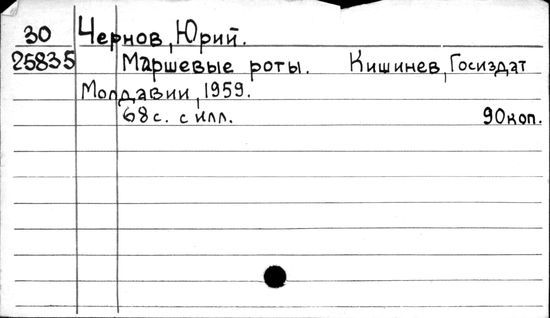 30 Чернов, Юрий.
25835 Маршевые роты. Кишинев, Госиздат
Молдавии, 1959.
68 с. с илл. 90 коп.